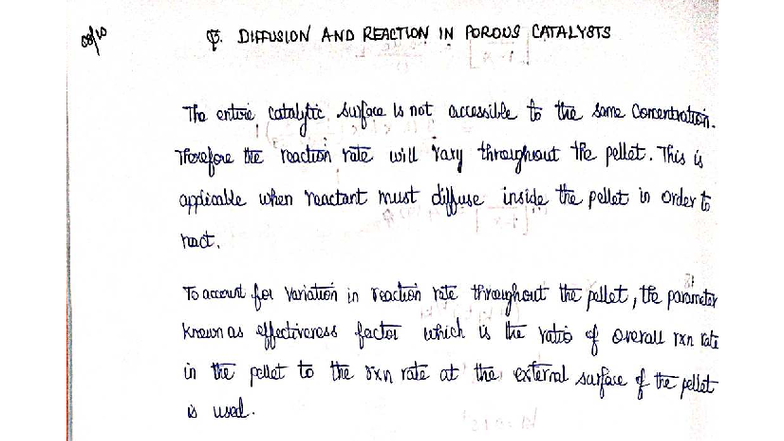 08/10
Q. DIFFUSION AND REACTION IN POROUS CATALYSTS
The entire catalytic surface is not accessible to the same concentration.
Therefore the reaction rate will vary throughout the pellet. This is
applicable when reactant must diffuse inside the pellet in order to
react.
To account for variation in reaction rate throughout the pellet, the parameter
known as effectiveness factor which is the ratio of overall rxn rate
in the pellet to the rxn rate at the external surface of the pellet
is used.